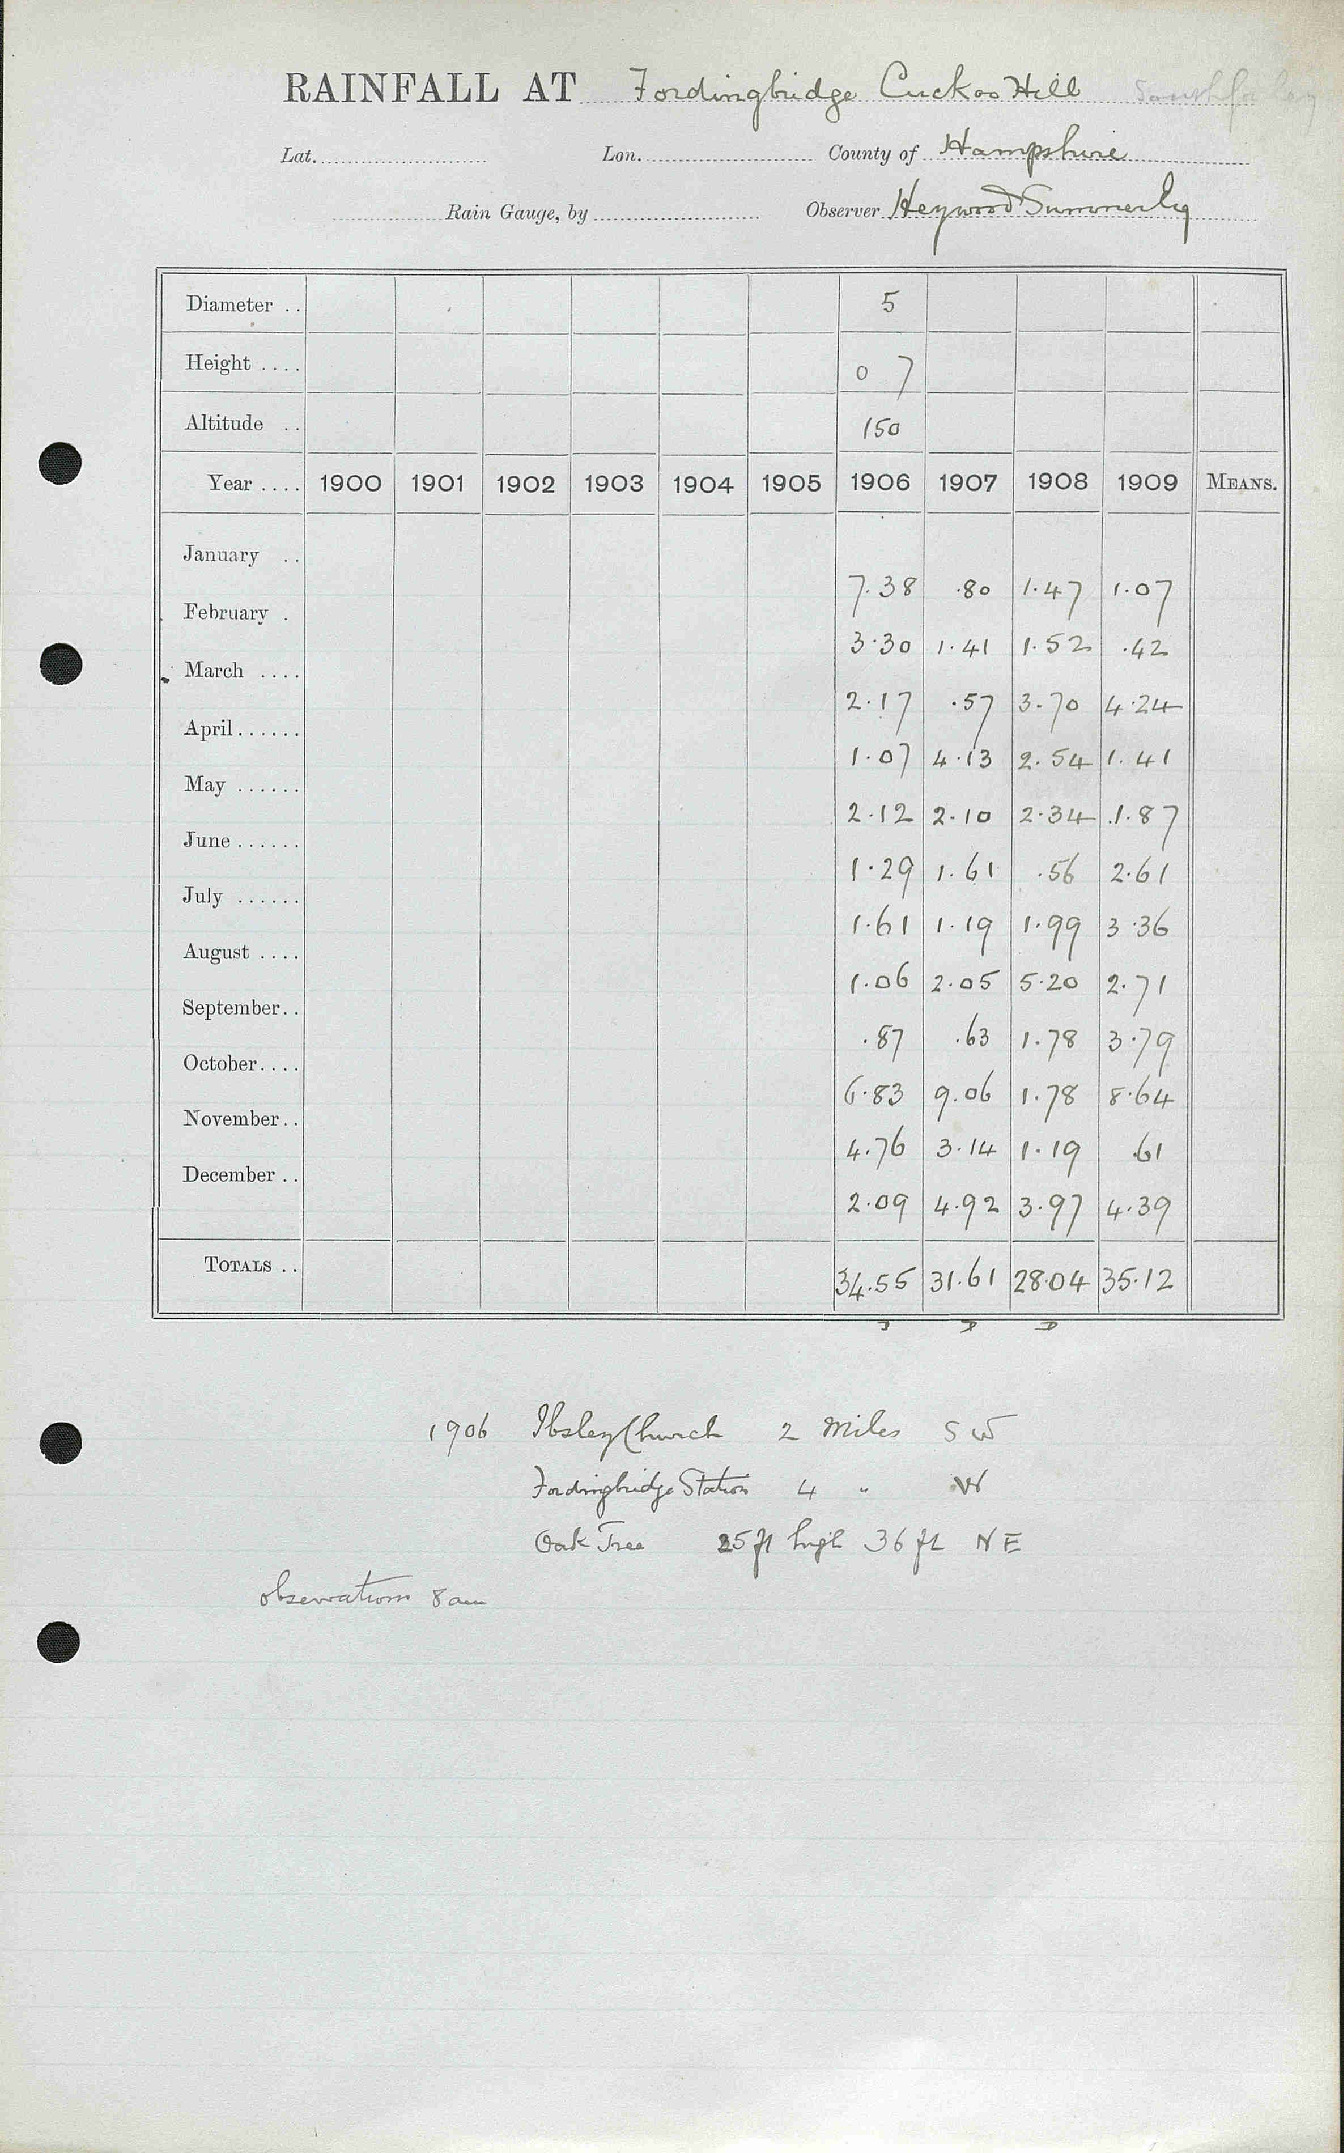 RAINFALL AT Fordingbridge Cuckoo Hill
Lat. Lon. County of Hampshire
Rain Gauge, by Observer Heywood Sumner Esq
Diameter .. 5
Height .... 0 7
Altitude .. 150
Year .... 1900 1901 1902 1903 1904 1905 1906 1907 1908 1909 MEANS.
January .. 7.38 .80 1.47 1.07
February . 3.30 1.41 1.52 .42
March .... 2.17 .57 3.70 4.24
April...... 1.07 4.13 2.54 1.41
May ...... 2.12 2.10 2.34 1.87
June ...... 1.29 1.61 .56 2.61
July ...... 1.61 1.19 1.99 3.36
August .... 1.06 2.05 5.20 2.71
September.. .87 .63 1.78 3.79
October.... 6.83 9.06 1.78 8.64
November.. 4.76 3.14 1.19 .61
December .. 2.09 4.92 3.97 4.39
TOTALS .. 34.55 31.61 28.04 35.12
1906 Ibsley Church 2 Miles SW
Fordingbridge Station 4 " W
Oak Tree 25 ft high 36 ft NE
observations 8 am